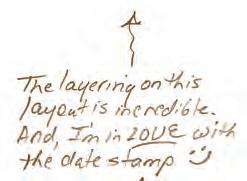 The layering on this
layout is incredible.
And, I'm in LOVE with
the date stamp :)